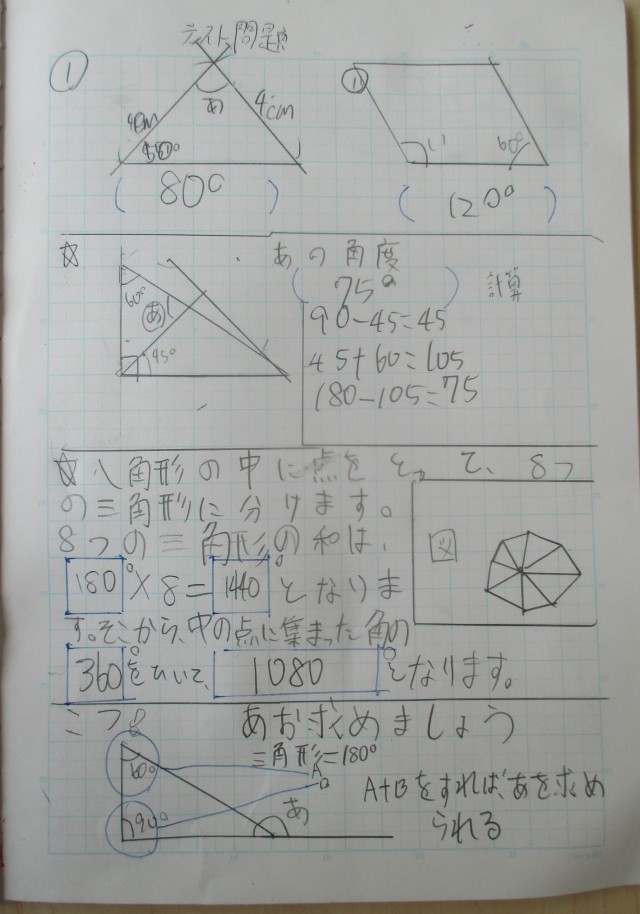 テスト問題
①
あ
4cm
4cm
50°
(80°)
①
い
60°
(120°)
☆
60°
あ
45°
あの角度
(75°)
計算
90-45=45
45+60=105
180-105=75
☆八角形の中に点をとって、8つ
の三角形に分けます。
8つの三角形の和は、
図
180°×8=1440°となりま
す。そこから、中の点に集まった角の
360°をひいて、1080°となります。
あお求めましょう
三角形=180°
60°
A
B
90°
あ
A+Bをすれば、あを求め
られる